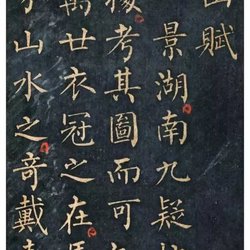 山賦
景湖南九疑
考其圖而可
萬世衣冠之在
山水之奇戴